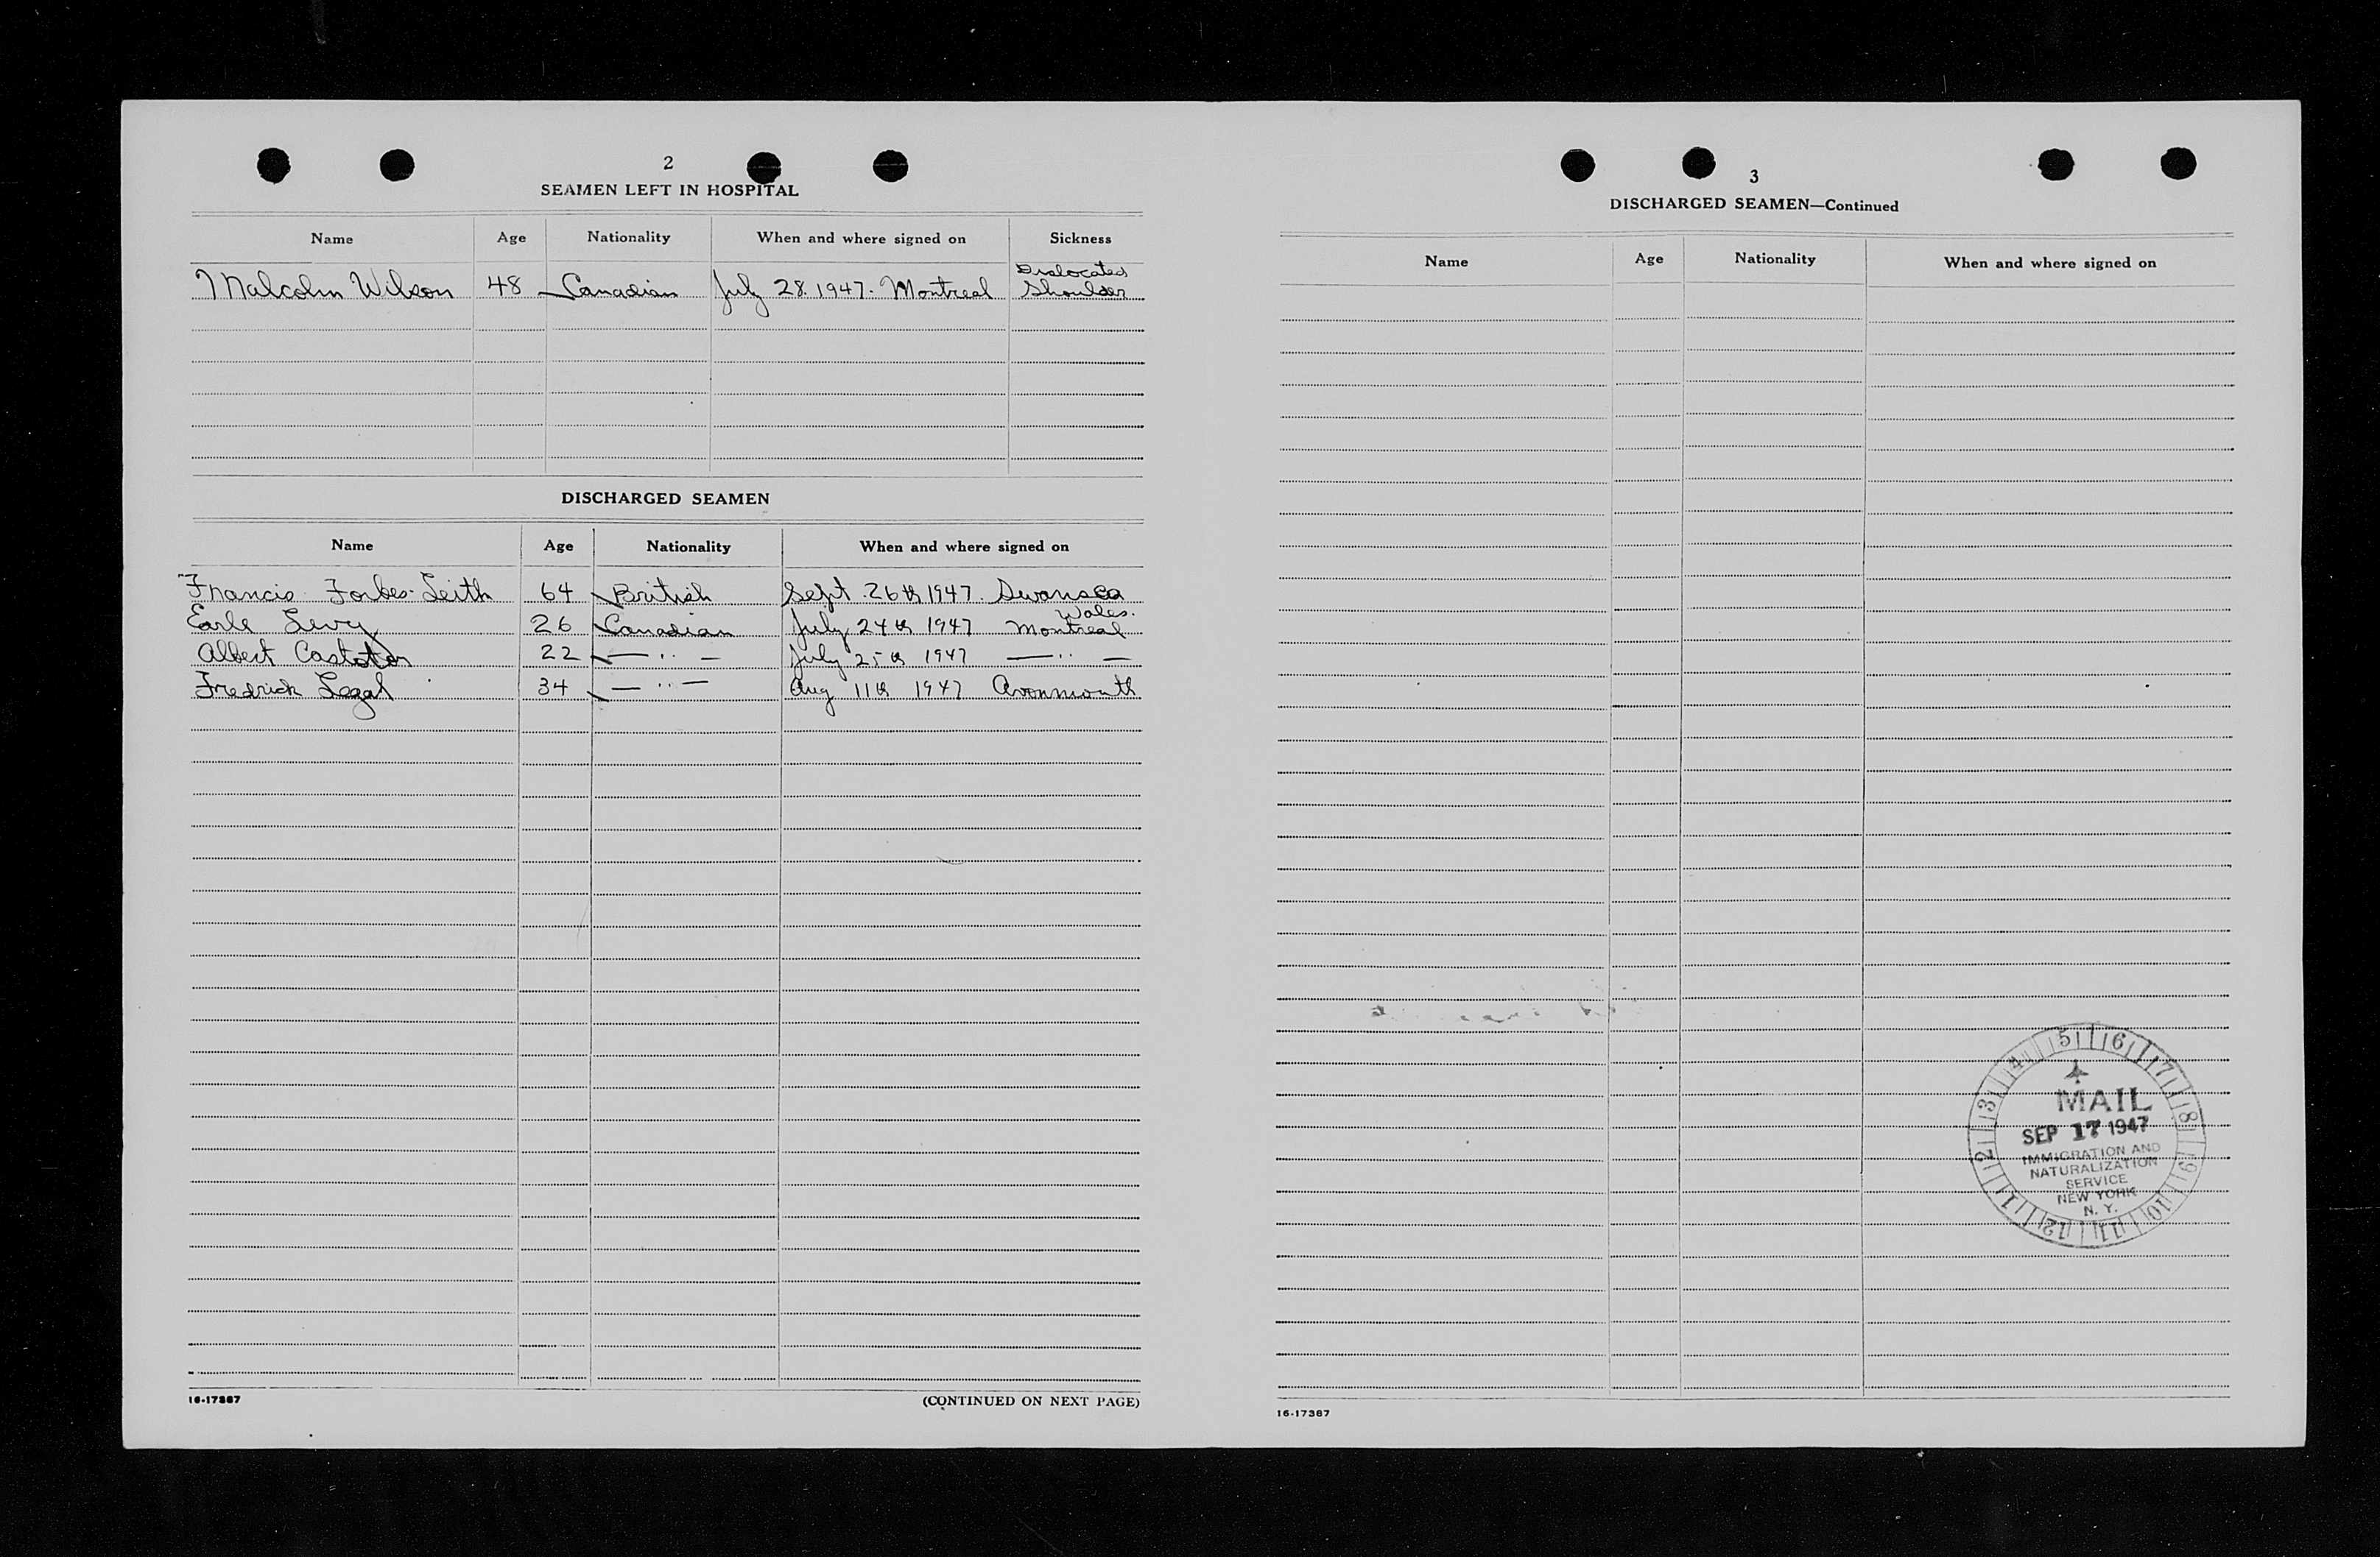 2
SEAMEN LEFT IN HOSPITAL
Name Age Nationality When and where signed on Sickness
Malcolm Wilson 48 Canadian July 28. 1947. Montreal Dislocated Shoulder
DISCHARGED SEAMEN
Name Age Nationality When and where signed on
Francis Forbes-Leith 64 British Sept. 26th 1947. Swansea Wales.
Earle Levy 26 Canadian July 24th 1947 Montreal
Albert 22 — " — July 25th 1947 — " —
Fredrick Legal 34 — " — Aug 11th 1947 Avonmouth
16-17387
(CONTINUED ON NEXT PAGE)
3
DISCHARGED SEAMEN—Continued
Name Age Nationality When and where signed on
1 2 3 4 5 6 7 8 9 10 11 12
MAIL
SEP 17 1947
IMMIGRATION AND
NATURALIZATION
SERVICE
NEW YORK
N. Y.
16-17387